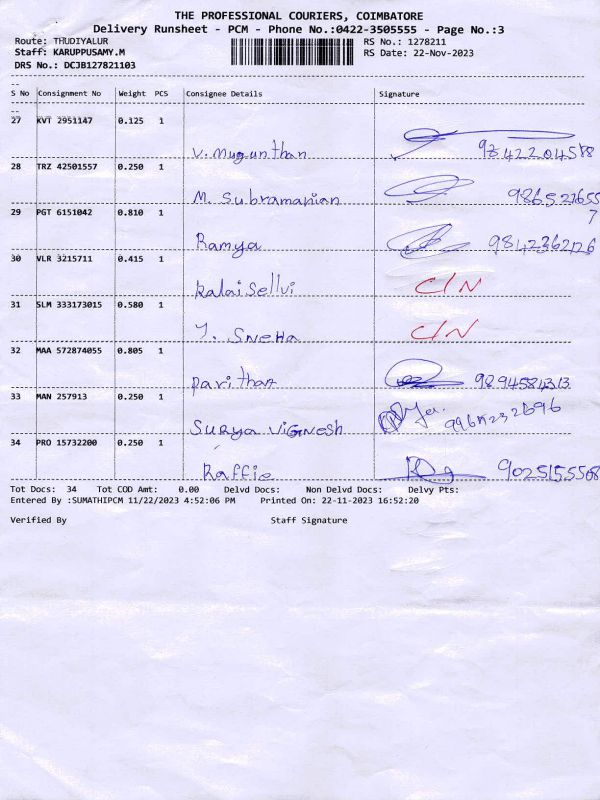 THE PROFESSIONAL COURIERS, COIMBATORE
Delivery Runsheet - PCM - Phone No.:0422-3505555 - Page No.:3
Route: THUDIYALUR RS No.: 1278211
Staff: KARUPPUSAMY.M RS Date: 22-Nov-2023
DRS No.: DCJB127821103
S No Consignment No Weight PCS Consignee Details Signature
27 KVT 2951147 0.125 1
V. Mugunthan 9842204588
28 TRZ 42501557 0.250 1
M. Subramanian 986527655
7
29 PGT 6151042 0.810 1
Ramya 9842362726
30 VLR 3215711 0.415 1
Kalai Sellvi C/N
31 SLM 333173015 0.580 1
Y. SNEHA C/N
32 MAA 572874055 0.805 1
Parithan 9894584313
33 MAN 257913 0.250 1
SURYA VIGNESH
34 PRO 15732200 0.250 1
Raffie 9025155568
Tot Docs: 34 Tot COD Amt: 0.00 Delvd Docs: Non Delvd Docs: Delvy Pts:
Entered By :SUMATHIPCM 11/22/2023 4:52:06 PM Printed On: 22-11-2023 16:52:20
Verified By Staff Signature